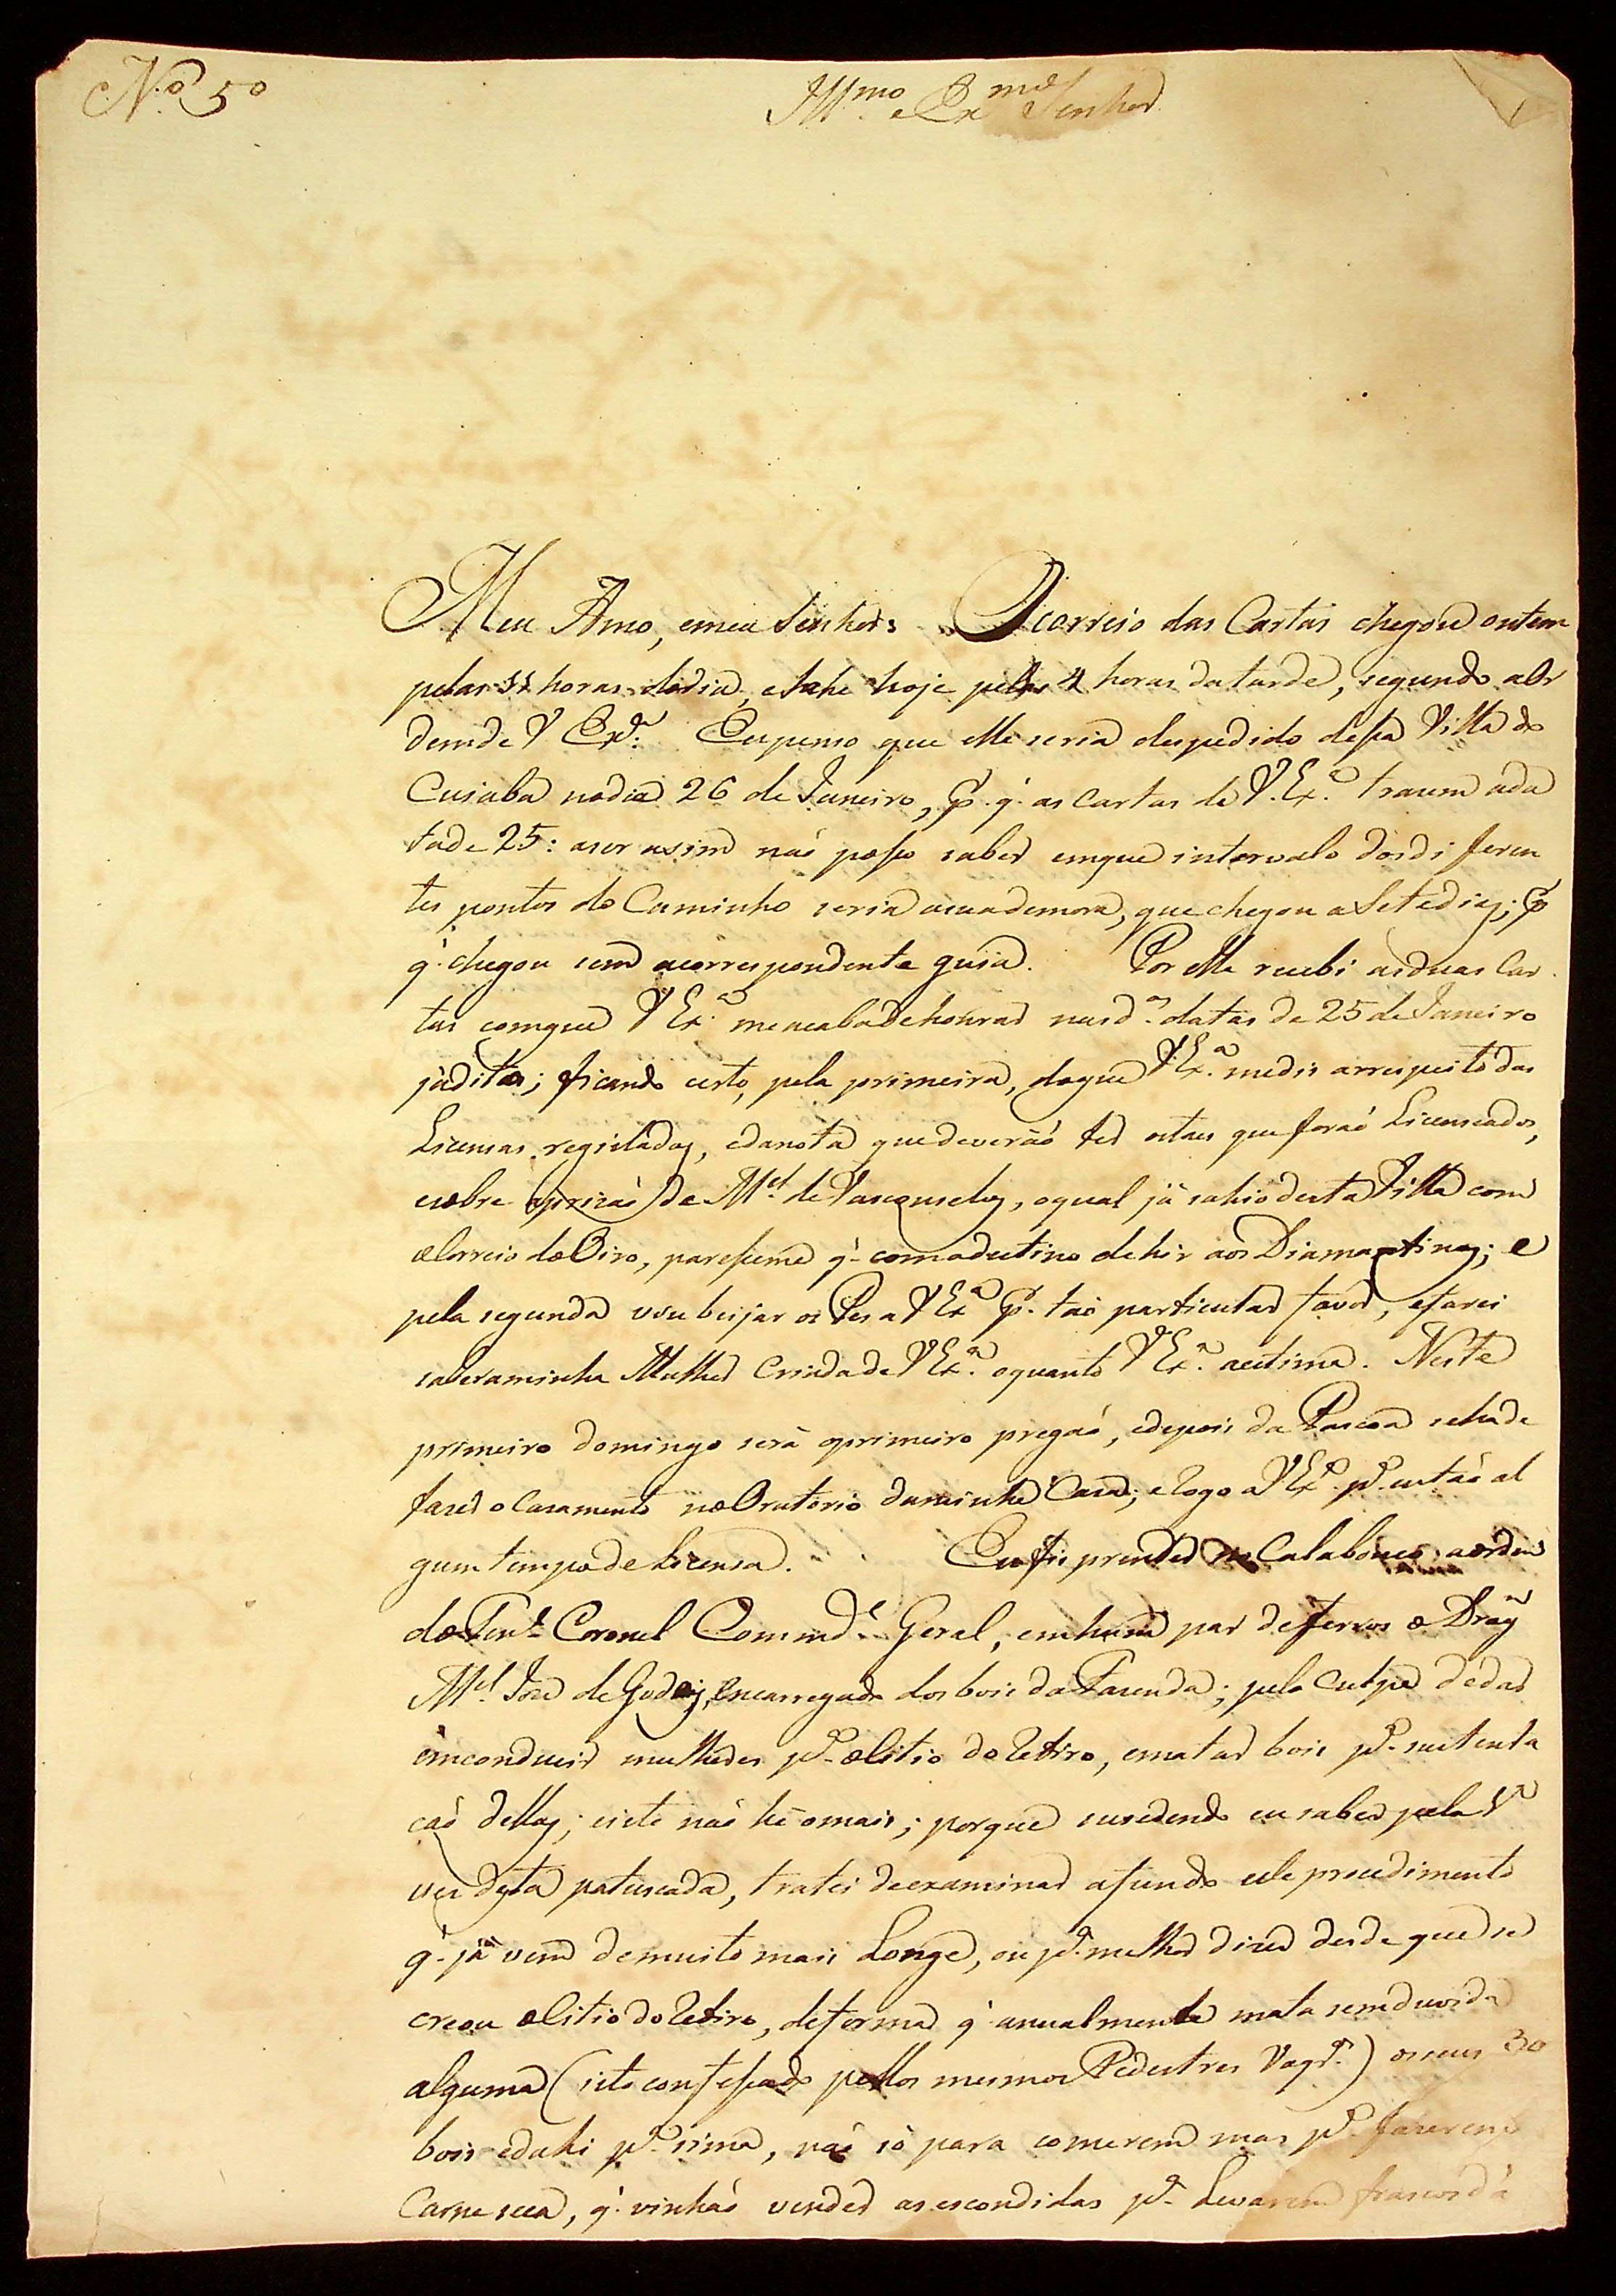 N.º 5º
Ill.mo e Ex.mo Senhor
Meu Amo, emeu Senhor: Ocorreio das Cartas chegou ontem
pelas 11 horas dodia, esahe hoje pelas 4 horas datarde, segundo aOr
demde V Ex.ª Eupenso que elle seria despedido desta Villa do
Cuiaba nodia 26 de Janeiro, p. q. as cartas de V. Ex.ª trazem ada
tade 25: aser asim naõ poso saber emque intervalo dosdiferen
tes pontos do Caminho seria asuademora, que chegou a Setedias; p
q. chegou sem acorrespondente guia. Por elle recebi asduas Car
tas comque V Ex.ª meacabadehonrar nasd.as datas de 25 de Janeiro
jáditas; ficando certo, pela primeira, doque V Ex.ª medis arrespeito das
Licensas registadas, edanota quedeveráõ ter estas que foraõ Licenseados,
esobre aprizaõ de M.el de Vasconselos, oqual já sahio desta Villa com
oCorreio doOiro, pareseme q. comodestino dehir aos Diamantinos; e
pela segunda vou beijar os Pes a V Ex.ª p. taõ particular favor, efarei
saberaminha Mulher Criadade V Ex.ª oquanto V Ex.ª aestima. Neste
primeiro domingo será oprimeiro pregaõ, edepois da Pascoa sehade
fazer o Casamento noOratorio daminha Casa; elogo a V Ex.ª p.ª entaõ al
gum tempo de Licensa. Eufis prender no Calabouco aordem
doTen.e Coronel Commd.e Geral, emhum par deferros o Drag.m
M.el Joze de Godoy, Encarregado dos bois daFazenda; pela Culpa dedar
emconduzir mulheres p.ª oSitio do Retiro, ematar bois p.ª sustenta
caõ dellas; eisto naõ he omais; porque susedendo eu saber pela 1.ª
vez desta patuscada, tratei deexaminar afundo este procedimento
q. já vem demuito mais Longe, ou p.ª melhor dizer desde que se
creou oSitio do Retiro, deforma q. anualmente mata semduvida
alguma (isto confesado pellos mesmos Pedestres Vaqr.os) osseus 30
bois edahi p.ª sima, naõ só para comerem mas p.ª fazerem
Carne seca, q. vinhaõ vender asescondidas p.ª Levarem frascos d'a